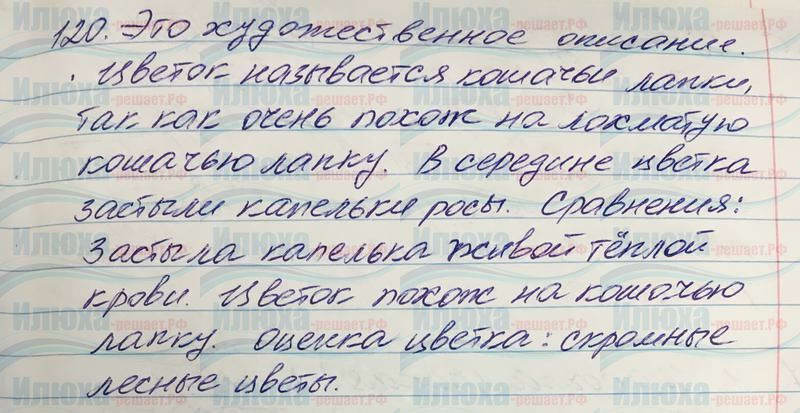 120. Это художественное описание.
Цветок называется кошачьи лапки,
так как очень похож на лохматую
кошачью лапку. В середине цветка
застыли капельки росы. Сравнения:
Застыла капелька живой тёплой
крови. Цветок похож на кошачью
лапку. Оценка цветка: скромные
лесные цветы.